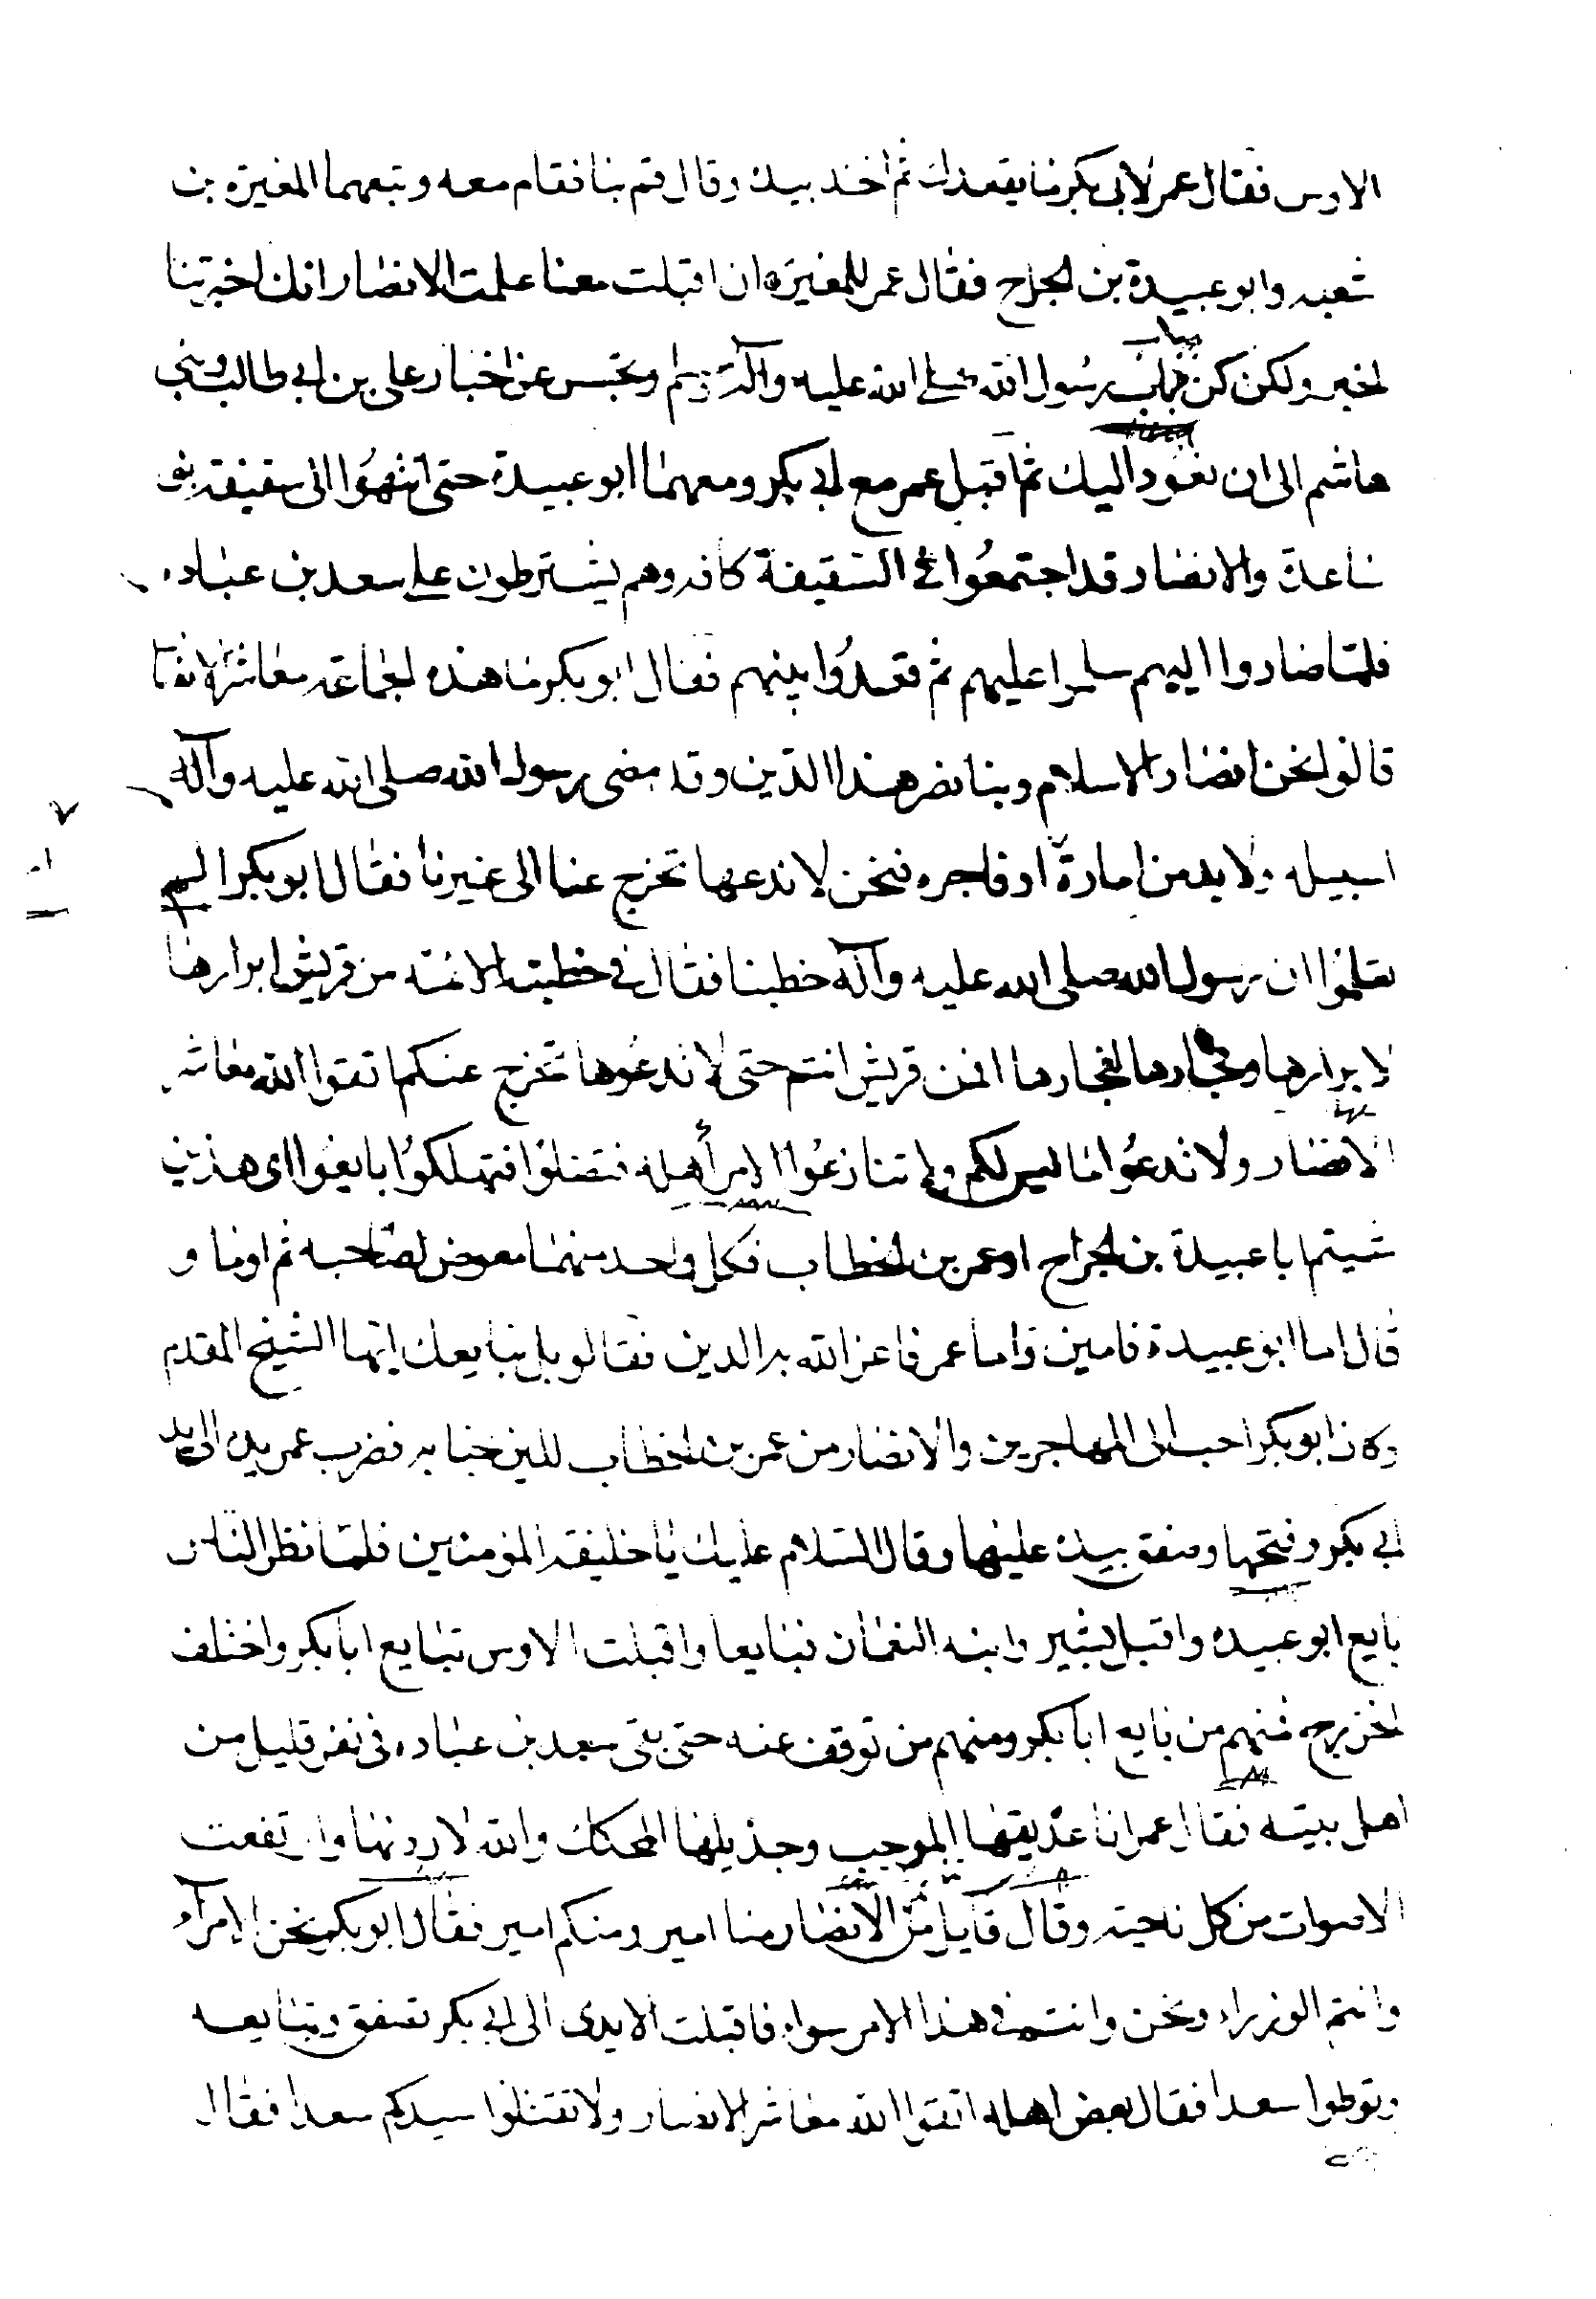 الاوس فقال عمر لابی بکر ما یقعدك ثم اخذ بیده وقال قم بنا فقام معه وتبعهما المغیره بن
شعبه وابو عبیدة بن الجراح فقال عمر للمغیره ان اقبلت معنا علمت الانصار انك اخبرتنا
الخبر ولکن کن بباب رسول الله صلی الله علیه وآله وسلم وتجسس عن اخبار علی بن ابی طالب وبنی
هاشم الی ان نعود الیك ثم اقبل عمر مع ابی بکر ومعهما ابو عبیدة حتی انتهوا الی سقیفة بنی
ساعدة والانصار قد اجتمعوا فی السقیفة کافه وهم یشترطون علی سعد بن عباده
فلما صاروا الیهم سلموا علیهم ثم قعدوا بینهم فقال ابو بکر ما هذه الجماعة معاشر الانصا
قالوا نحن انصار الاسلام وبنا نصر هذا الدین وقد مضی رسول الله صلی الله علیه وآله
لسبیله ولا بد من امارة او فاجره فنحن لا ندعها تخرج عنا الی غیرنا فقال ابو بکر الستم
تعلموا ان رسول الله صلی الله علیه وآله خطبنا فقال فی خطبته الائمة من قریش ابرارها
لابرارها وفجارها لفجارها افمن قریش انتم حتی لا تدعوها تخرج عنکم اتقوا الله معاشر
الانصار ولا تدعوا ما لیس لکم ولا تنازعوا الامر أهله فتضلوا فتهلکوا بایعوا ای هذین
شیتم ابا عبیدة بن الجراح او عمر بن الخطاب فکل واحد منهما معوض لصاحبه ثم اوما و
قال اما ابو عبیدة فامین واما عمر فاعز الله به الدین فقالو بل نبایعك ایها الشیخ المقدم
وکان ابو بکر احب الی المهاجرین والانصار من عمر بن الخطاب للین جنابه فضرب عمر یده الی ید
ابی بکر وفتحها وصفق بیده علیها وقال السلام علیك یا خلیفة المؤمنین فلما نظر الناس
بایع ابو عبیده واقبل بشیر وابنه النعمان فبایعا واقبلت الاوس تبایع ابا بکر واختلف
الخزرج فمنهم من بایع ابا بکر ومنهم من توقف عنه حتی بقی سعد بن عباده فی نفر قلیل من
اهل بیته فقال عمر انا عذیقها الموجب وجذیلها المحکك والله لاردنها وارتفعت
الاصوات من کل ناحیة وقال قایل من الانصار منا امیر ومنکم امیر فقال ابو بکر نحن الامرآء
وانتم الوزراء ونحن وانتم فی هذا الامر سواء فاقبلت الایدی الی ابی بکر تصفق وتبایعه
وتوطوا سعدا فقال بعض اهله اتقوا الله معاشر الانصار ولا تقتلوا سیدکم سعدا فقال